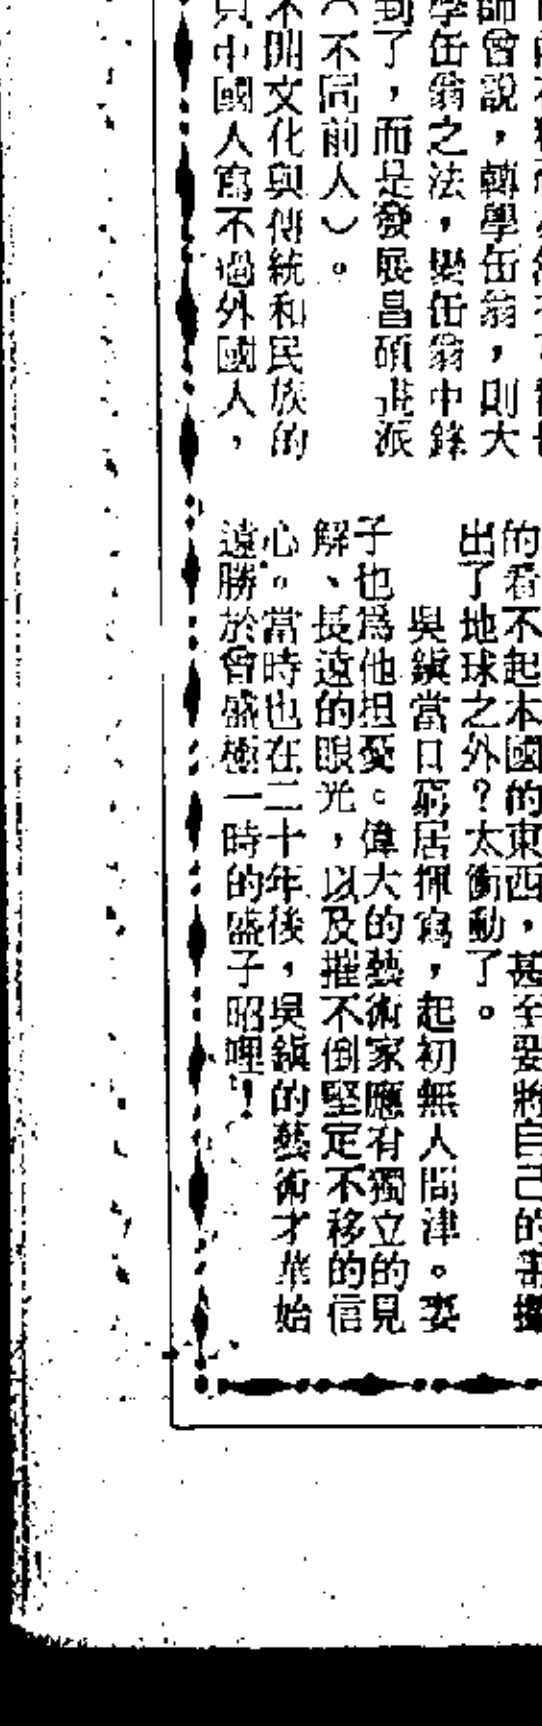 師曾說，轉學缶翁，則大
學缶翁之法，變缶翁中鋒
到了，而是發展昌碩畫派
（不同前人）。
不開文化與傳統和民族的
中國人寫不過外國人，
的看不起本國的東西，甚至要將自己的
出了地球之外？太衝動了。
吳鎮當日窮居揮寫，起初無人問津。妻
子也為他担憂。偉大的藝術家應有獨立的見
解、長遠的眼光，以及摧不倒堅定不移的信
心。當時也在二十年後，吳鎮的藝術才華始
遠勝於曾盛極一時的盛子昭哩！